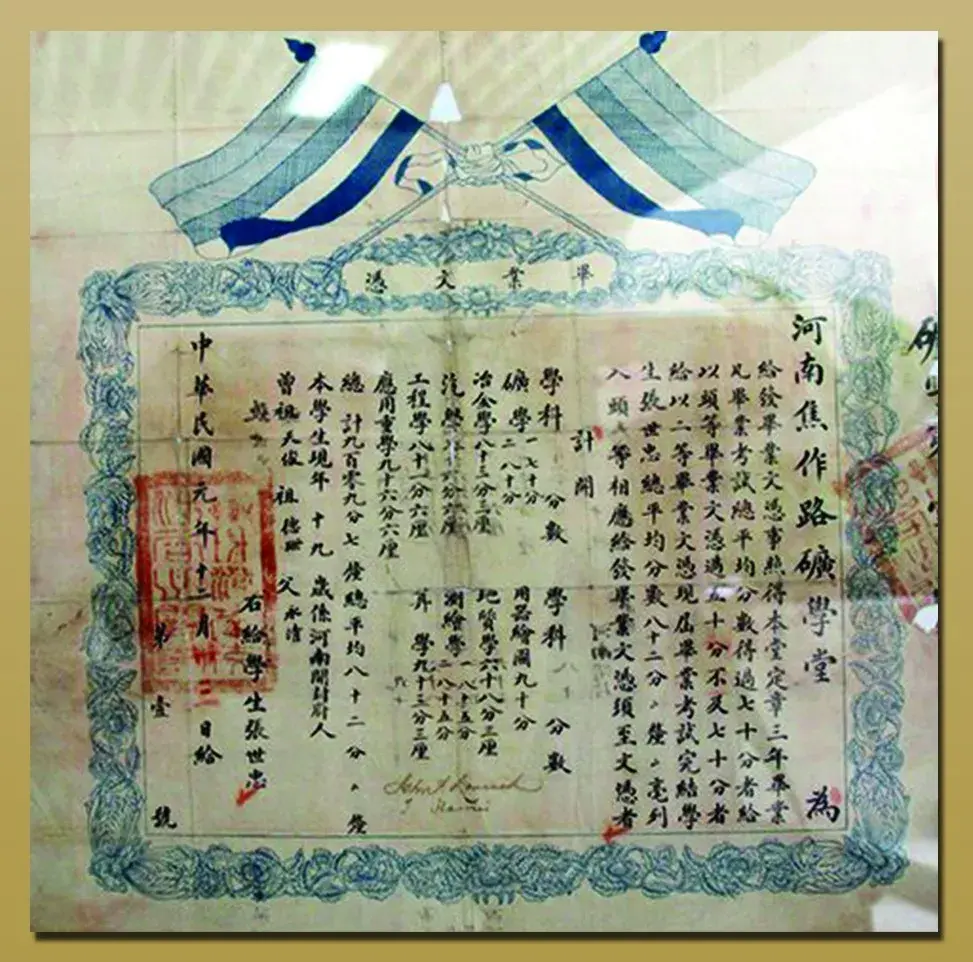 畢業文憑
河南焦作路礦學堂 為
給發畢業文憑事照得本堂定章三年畢業
凡畢業考試總平均分數得過七十分者給
以頭等畢業文憑過五十分不及七十分者
給以二等畢業文憑現屆畢業考試完結學
生張世忠總平均分數八十二分〃釐〃毫列
入頭等相應給發畢業文憑須至文憑者
計開
學科 分數 學科 分數
礦學 一 七十分 二 八十分 用器繪圖九十分
冶金學八十三分三厘 地質學六十八分三厘
汽 學 分六厘 測繪學 一 八十五分 二 八十五分
工程學八十一分六厘 算學九十三分三厘
應用重學九十六分六厘
總計九百零九分七釐總平均八十二分〃釐
本學生現年十九歲係河南開封府人
曾祖天俊 祖德 父永清
右給學生張世忠
中華民國元年十二月 三日給
第壹號
John